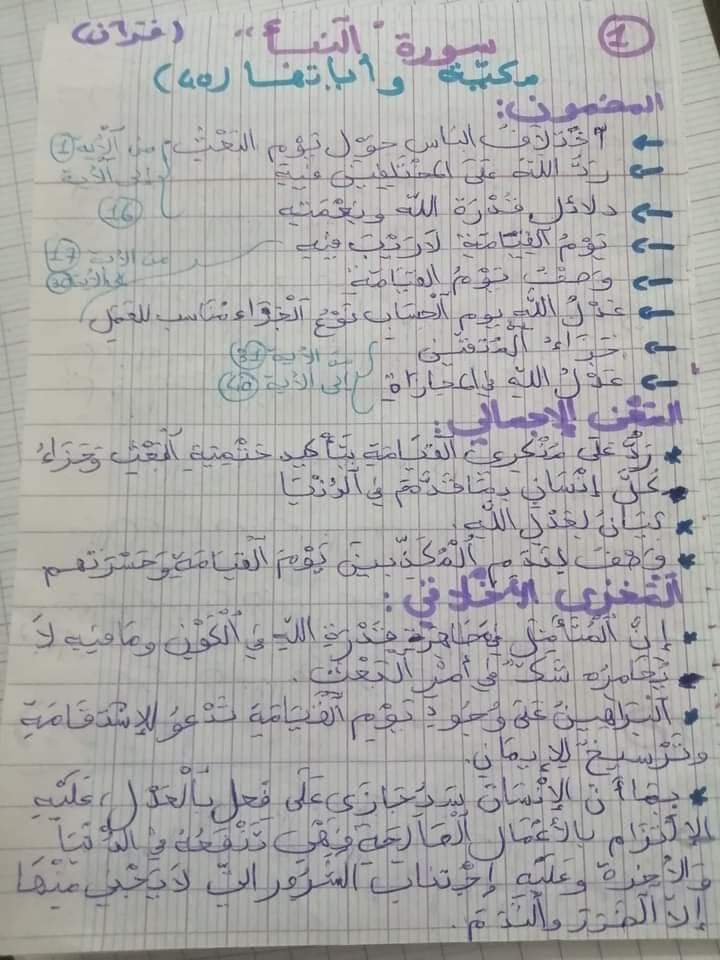 1
سورة "النبأ" (قرآن)
مكيّة وأياتها (40)
المضمون:
← اخْتلافُ الناس حَوْل يَوْم البَعْثِ
← رَدُّ اللّه عَلَى المختلفين فيه
← دلائل قُدْرَة اللّه ونِعْمَتِه
من الآية 1
إلى الآية
16
← يَوْمُ القِيَامَةِ لَا رَيْبَ فِيه
← وَصْفُ يَوْمُ القيَامَةِ
← عَدْلُ اللّه يوم الْحسَاب نَوْعُ الْجَزَاء مُنَاسب للعَمَلِ
من الآية 17
30
← جَزَاءُ الْمُتَّقِينَ
← عَدْلُ اللّهِ في المجازاةِ
من الآية 31
إلى الآية 40
المَعْنَى الإجمالي:
* رَدٌّ عَلَى مُنْكري القِيَامَةِ بتَأكيد حَتْمِيَةِ الْبَعْثِ وَجَزَاءُ
* كُلّ إنْسَانٍ بِمَا قَدَّمَ في الدُّنْيَا
* بَيَانٌ لِعَدْلِ اللَّهِ.
* وَصْفٌ لِنَدَمِ الْمُكَذِّبِينَ يَوْمَ الْقِيَامَةِ وَحَسْرَتِهِم
الْمَغزى الأخلاقي:
* إنَّ الْمُتَأَمِّلَ في مَظَاهِرِ قُدْرَةِ اللّهِ في الْكَوْنِ وَمَا فيهِ لاَ
* يُخَامِرُه شَكٌّ في أَمْرِ الْبَعْثِ.
* الْبَرَاهِينُ عَلَى وُجُودِ يَوْمِ الْقِيَامَةِ تَدْعُو لِلإسْتِقَامَةِ
وَتَرْسِيخٌ لِلإيمَانِ.
* بِمَا أنَ الإِنْسَانَ سَيُجَازَى عَلَى فِعْلِ بِالْعَدْلِ، عَلَيْهِ
الإلْتِزَام بِالأَعْمَالِ الْصَالِحَةِ فَهْيَ تَنْفَعُهُ فِي الدُّنْيَا
وَالآخِرَة وَعَلَيْهِ إجْتِنَاب الشُرُور الّتي لاَ يَجْنِي مِنْهَا
إلاّ الْضَرَرَ وَالْنَّدَمَ.